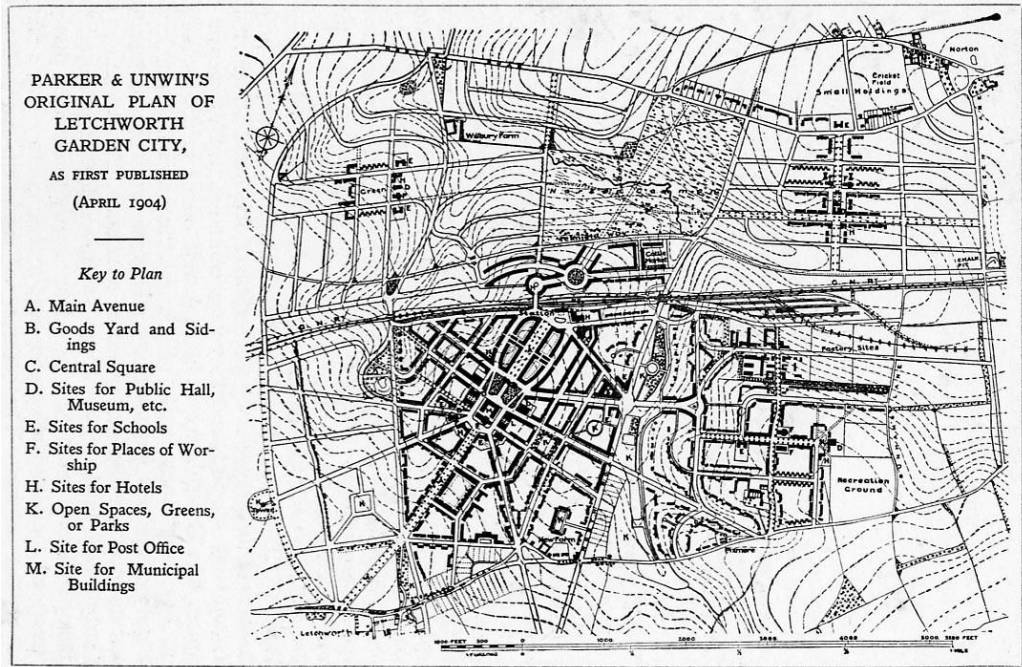 PARKER & UNWIN'S
ORIGINAL PLAN OF
LETCHWORTH
GARDEN CITY,
AS FIRST PUBLISHED
(APRIL 1904)
Key to Plan
A. Main Avenue
B. Goods Yard and Sid-
ings
C. Central Square
D. Sites for Public Hall,
Museum, etc.
E. Sites for Schools
F. Sites for Places of Wor-
ship
H. Sites for Hotels
K. Open Spaces, Greens,
or Parks
L. Site for Post Office
M. Site for Municipal
Buildings
Norton
Cricket
Field
Small Holdings
Wilbury Farm
Green
Cattle
Market
CHALK
PIT
G. N. RY
G. N. RY
Station
Factory Sites
Recreation
Ground
Pixmore
Letchworth
1000 FEET 500 0 1000 2000 3000 4000 5000 5280 FEET
1 FURLONG 0 ¼ ½ ¾ 1 MILE